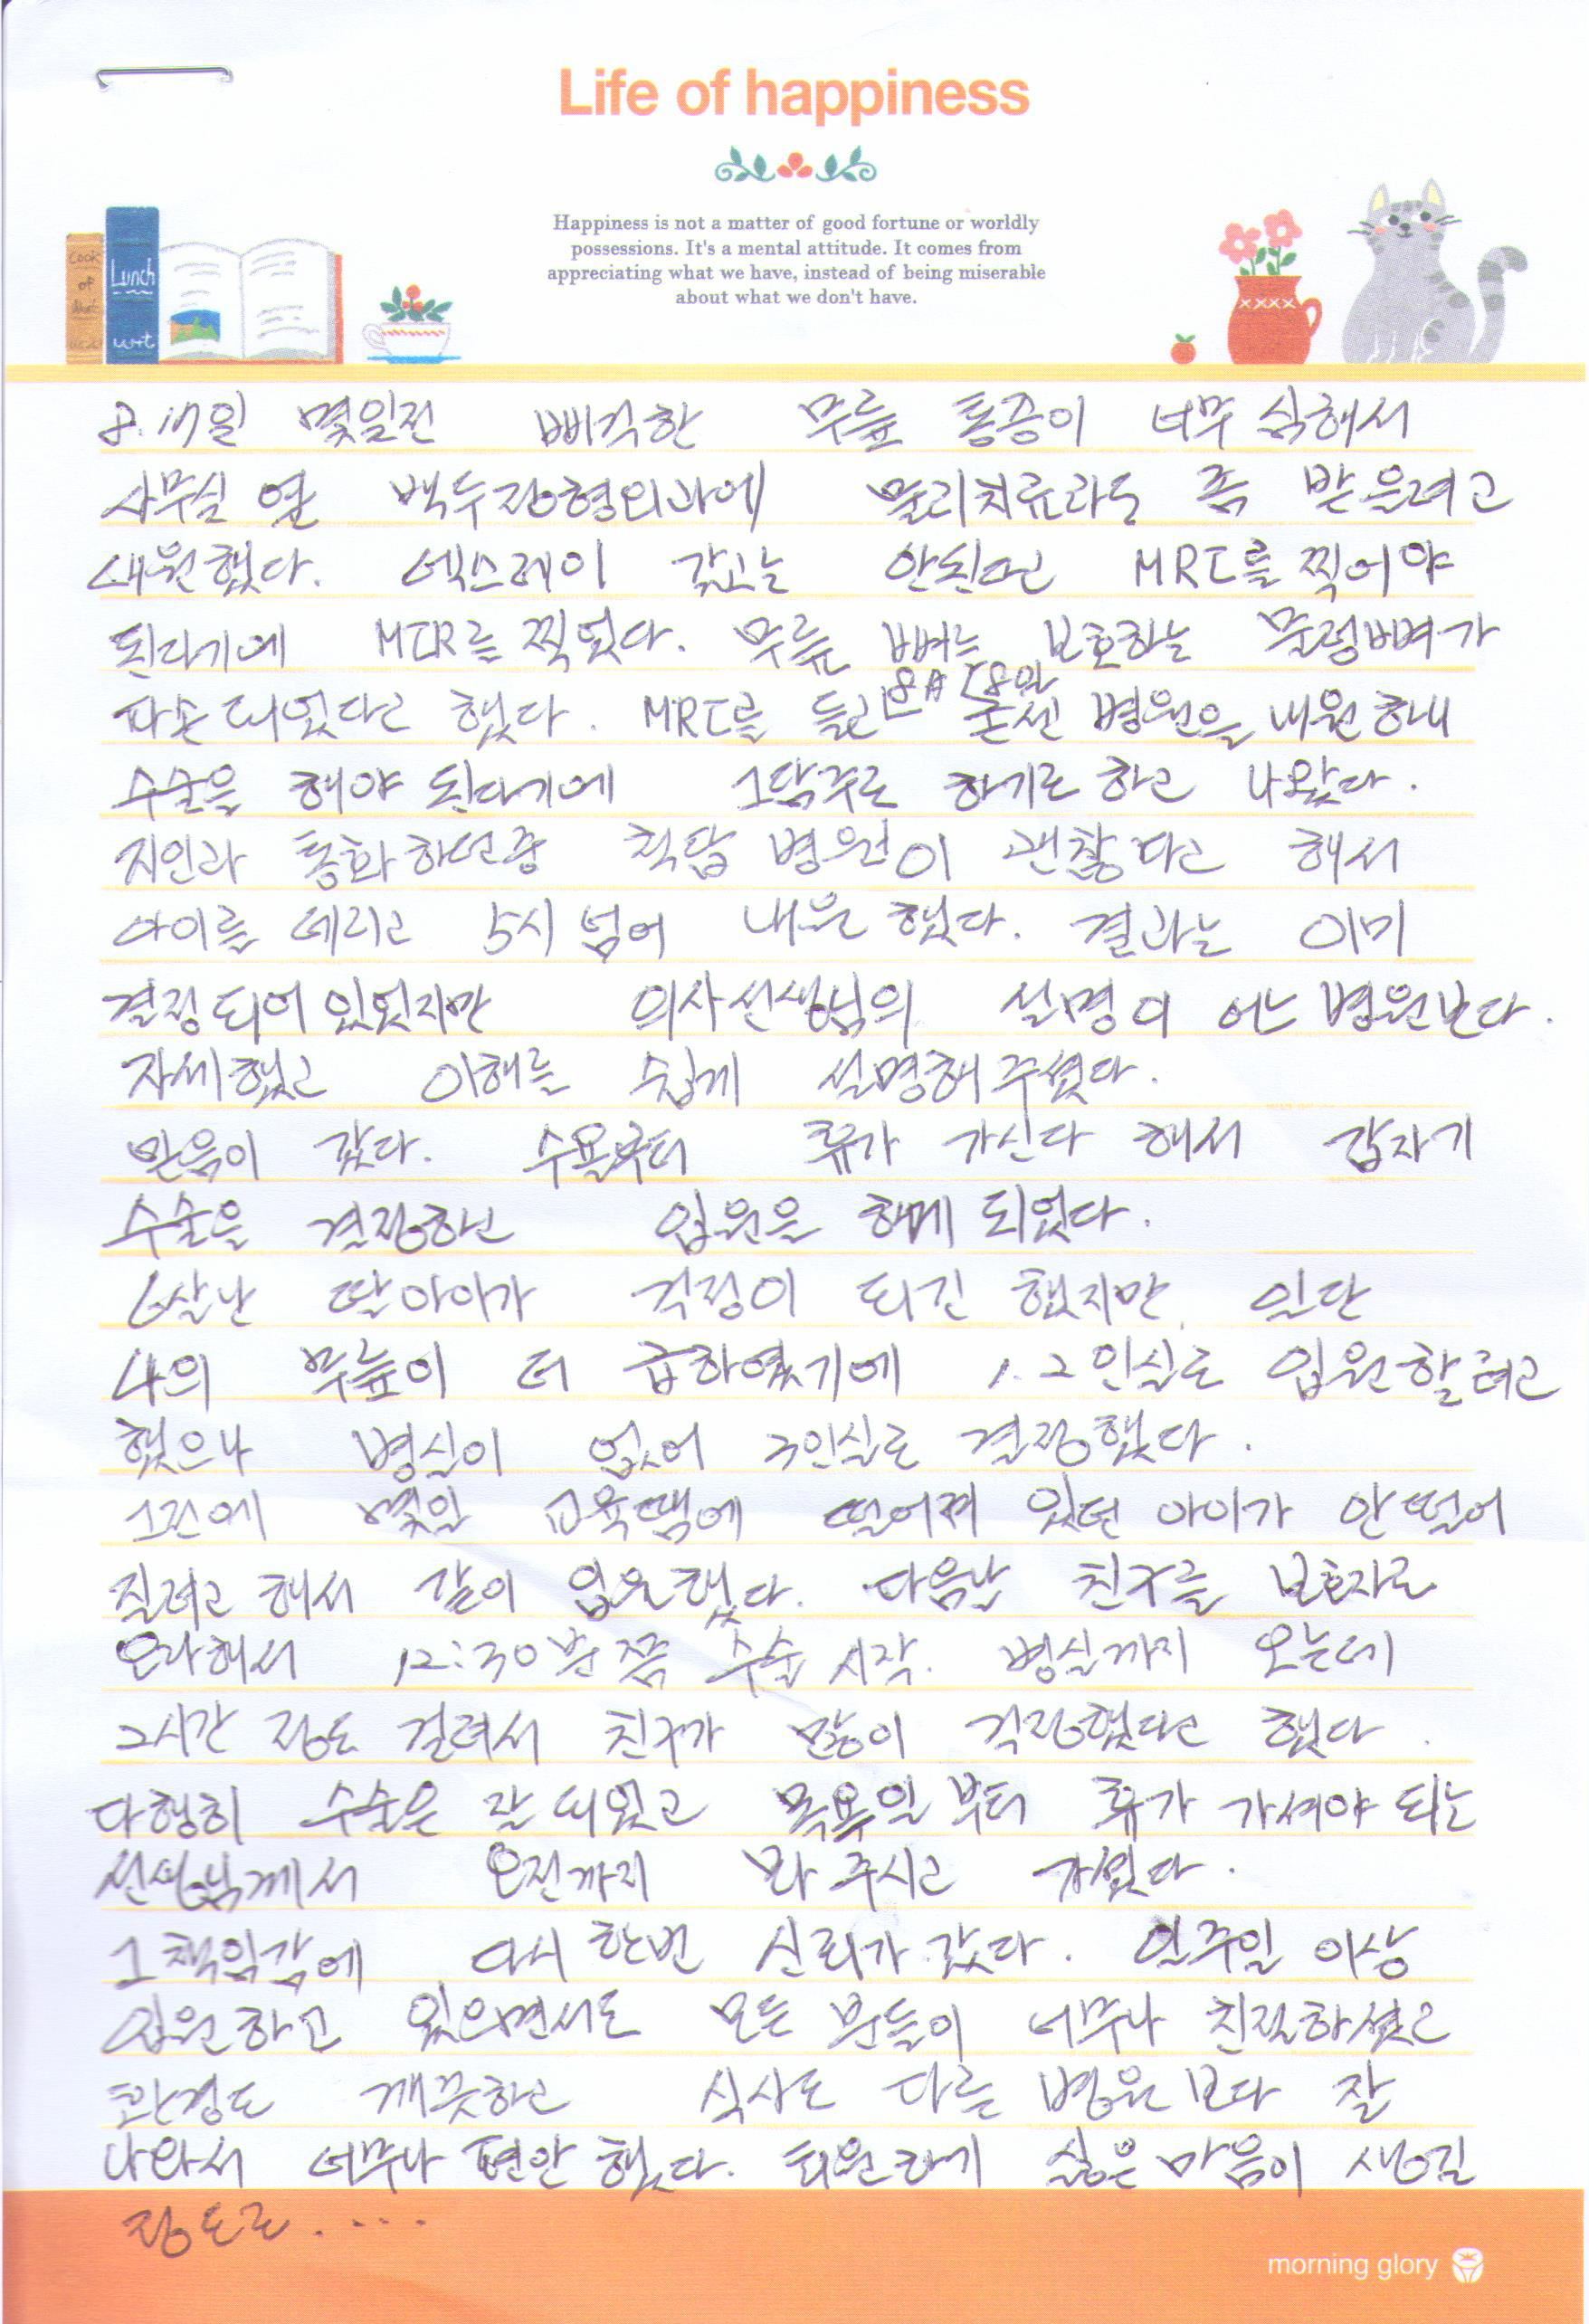 Life of happiness
Happiness is not a matter of good fortune or worldly
possessions. It's a mental attitude. It comes from
appreciating what we have, instead of being miserable
about what we don't have.
Cook
of
Lunch
8.17일 몇일전 삐걱한 무릎 통증이 너무 심해서
사무실 옆 백두정형외과에 물리치료라도 좀 받을려고
내원했다. 엑스레이 갖고는 안된다고 MRI를 찍어야
된다기에 MIR를 찍었다. 무릎 뼈는 보호하는 물렁뼈가
파손되었다고 했다. MRI를 들고 병원을 내원해
8月 18일
수술을 해야 된다기에 그 담주로 하기로 하고 나왔다.
지인과 통화하던중 척탑병원이 괜찮다고 해서
아이를 데리고 5시 넘어 내원했다. 결과는 이미
결정되어 있었지만 의사선생님의 설명이 어느 병원보다.
자세했고 이해를 쉽게 설명해 주셨다.
믿음이 갔다. 수욜부터 휴가 가신다 해서 갑자기
수술을 결정하고 입원을 하게 되었다.
6살난 딸아이가 걱정이 되긴 했지만, 일단
나의 무릎이 더 급하였기에 1.2인실로 입원할려고
했으나 병실이 없어 3인실로 결정했다.
그전에 몇일 교육땜에 떨어져 있던 아이가 안떨어
질려고 해서 같이 입원했다. 다음날 친구를 보호자로
오라해서 12:30분쯤 수술 시작. 병실까지 오는데
2시간 정도 걸려서 친구가 많이 걱정했다고 했다.
다행히 수술은 잘 되었고 목욜일부터 휴가 가셔야 되는
선생님께서 오전까지 봐 주시고 가셨다.
그 책임감에 다시 한번 신뢰가 갔다. 일주일 이상
입원하고 있으면서도 모든 분들이 너무나 친절하셨고
환경도 깨끗하고 식사도 다른 병원보다 잘
나와서 너무나 편안했다. 퇴원하기 싫은 마음이 생길
정도로.....
morning glory